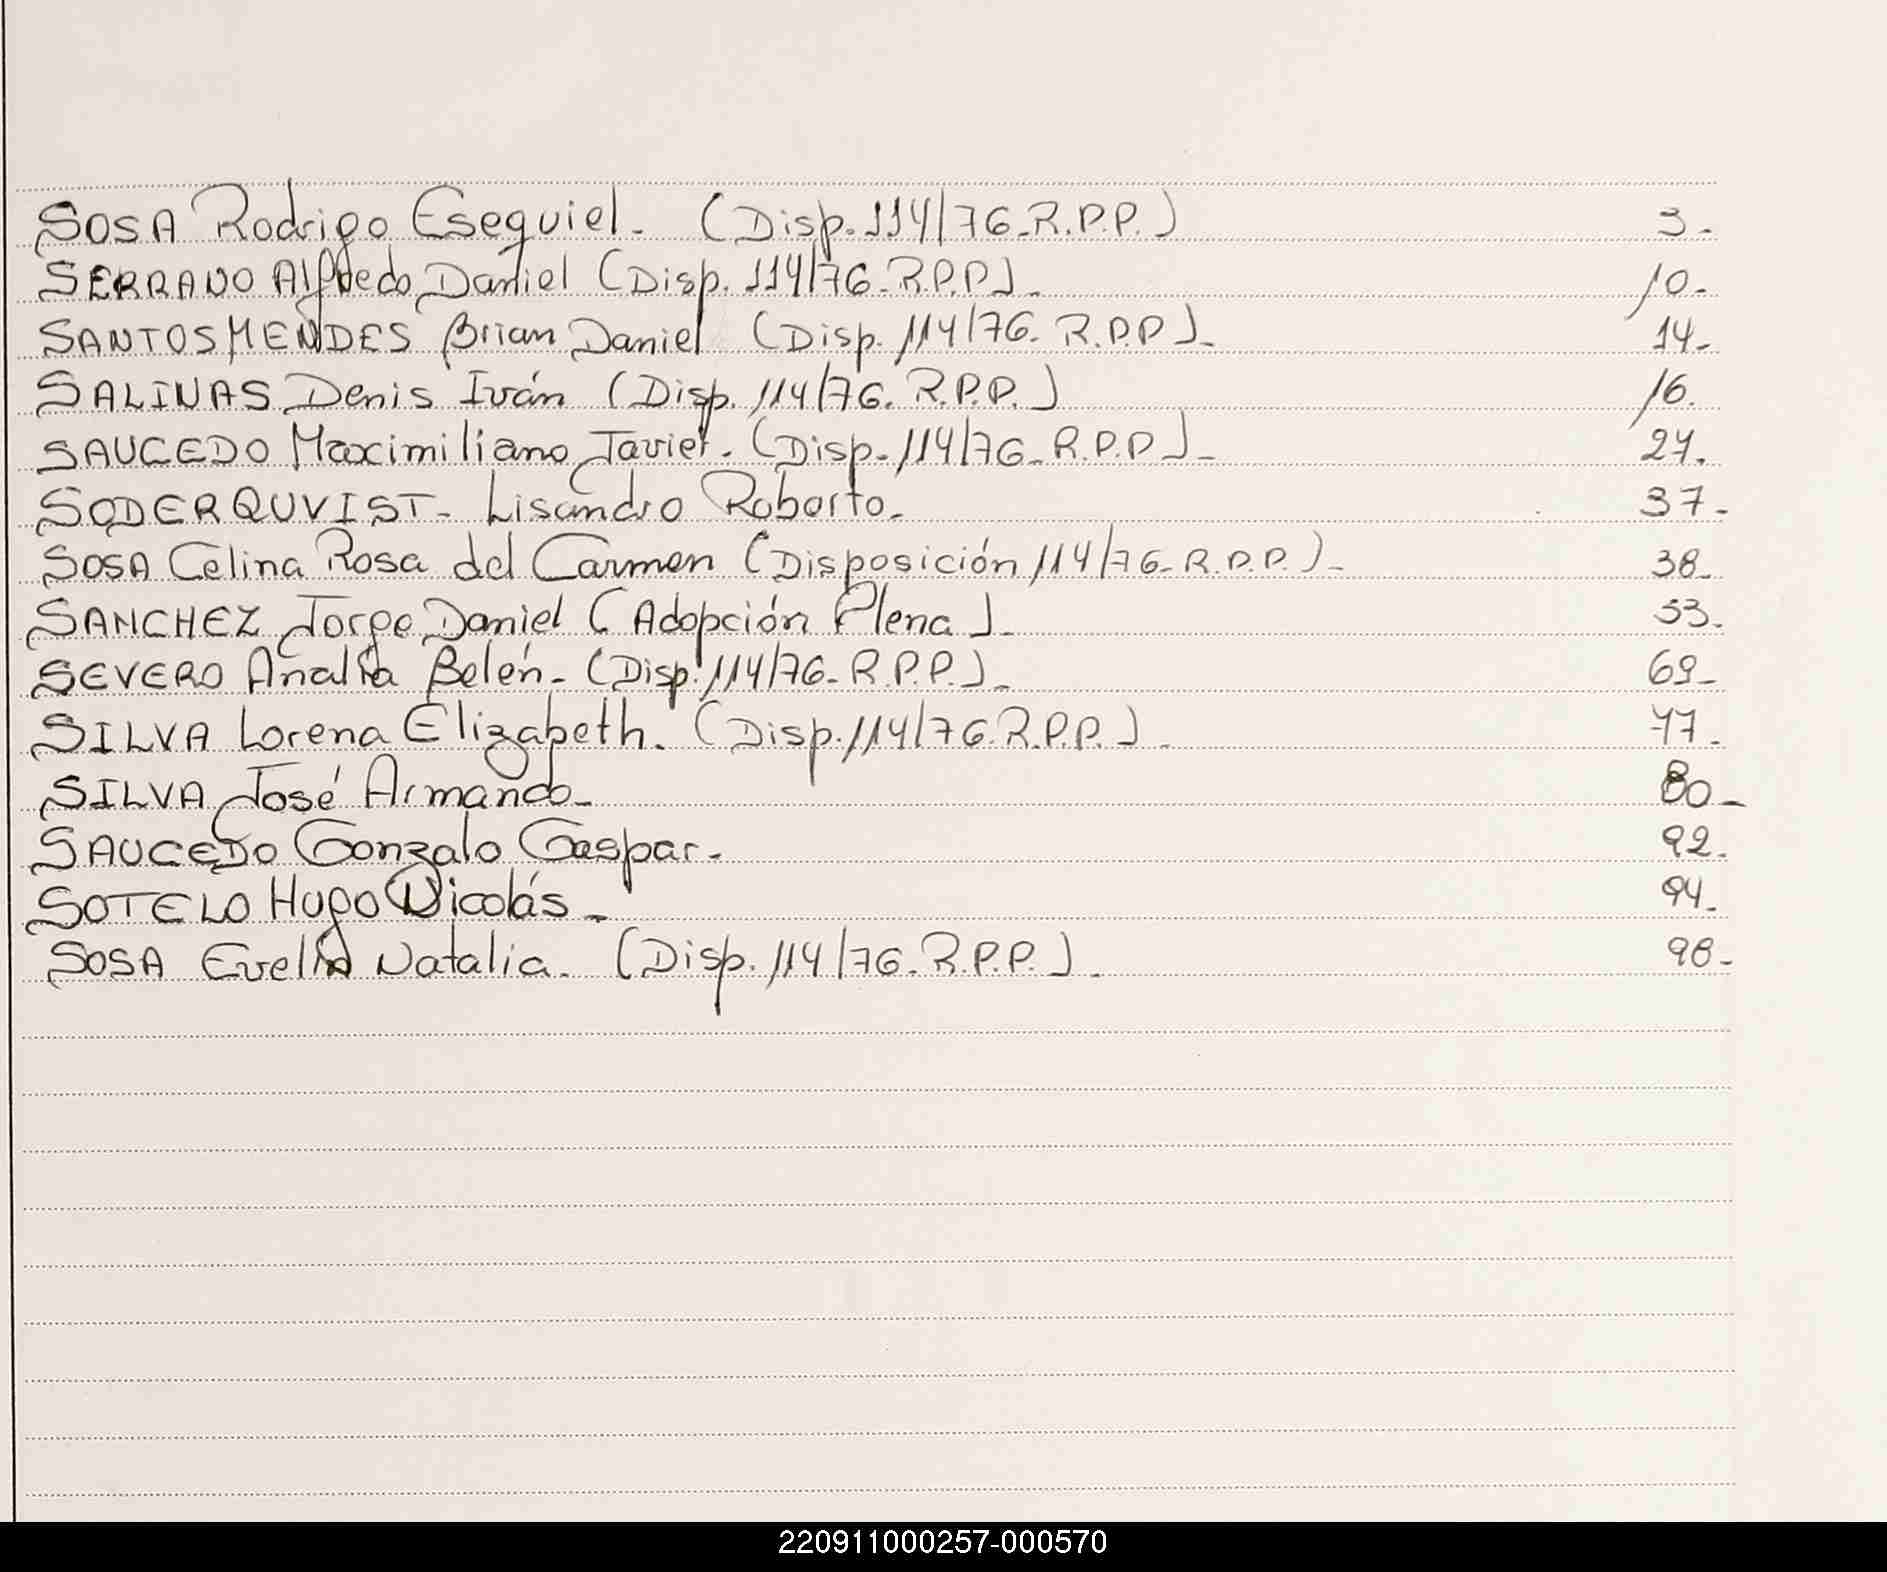 SOSA Rodrigo Esequiel. (Disp. 114/76-R.P.P.) 3.-
SERRANO Alfredo Daniel (Disp. 114/76-R.P.P)- 10.-
SANTOS MENDES Brian Daniel (Disp. 114/76. R.P.P)- 14.-
SALINAS Denis Iván (Disp. 114/76. R.P.P.) 16.
SAUCEDO Maximiliano Javier. (Disp. 114/76-R.P.P)-
SODERQUVIST- Lisandro Roberto.- 37.-
SOSA Celina Rosa del Carmen (Disposición 114/76-R.P.P.)- 38.-
SANCHEZ Jorge Daniel (Adopción Plena)- 53.
SEVERO Analía Belén- (Disp. 114/76-R.P.P.)- 69-
SILVA Lorena Elizabeth. (Disp. 114/76.R.P.P.)- 77.-
SILVA José Armando- 80-
SAUCEDO Gonzalo Gaspar.- 92.
SOTELO Hugo Nicolás- 94.-
SOSA Evelin Natalia. (Disp. 114/76.R.P.P.)- 98.-
220911000257-000570